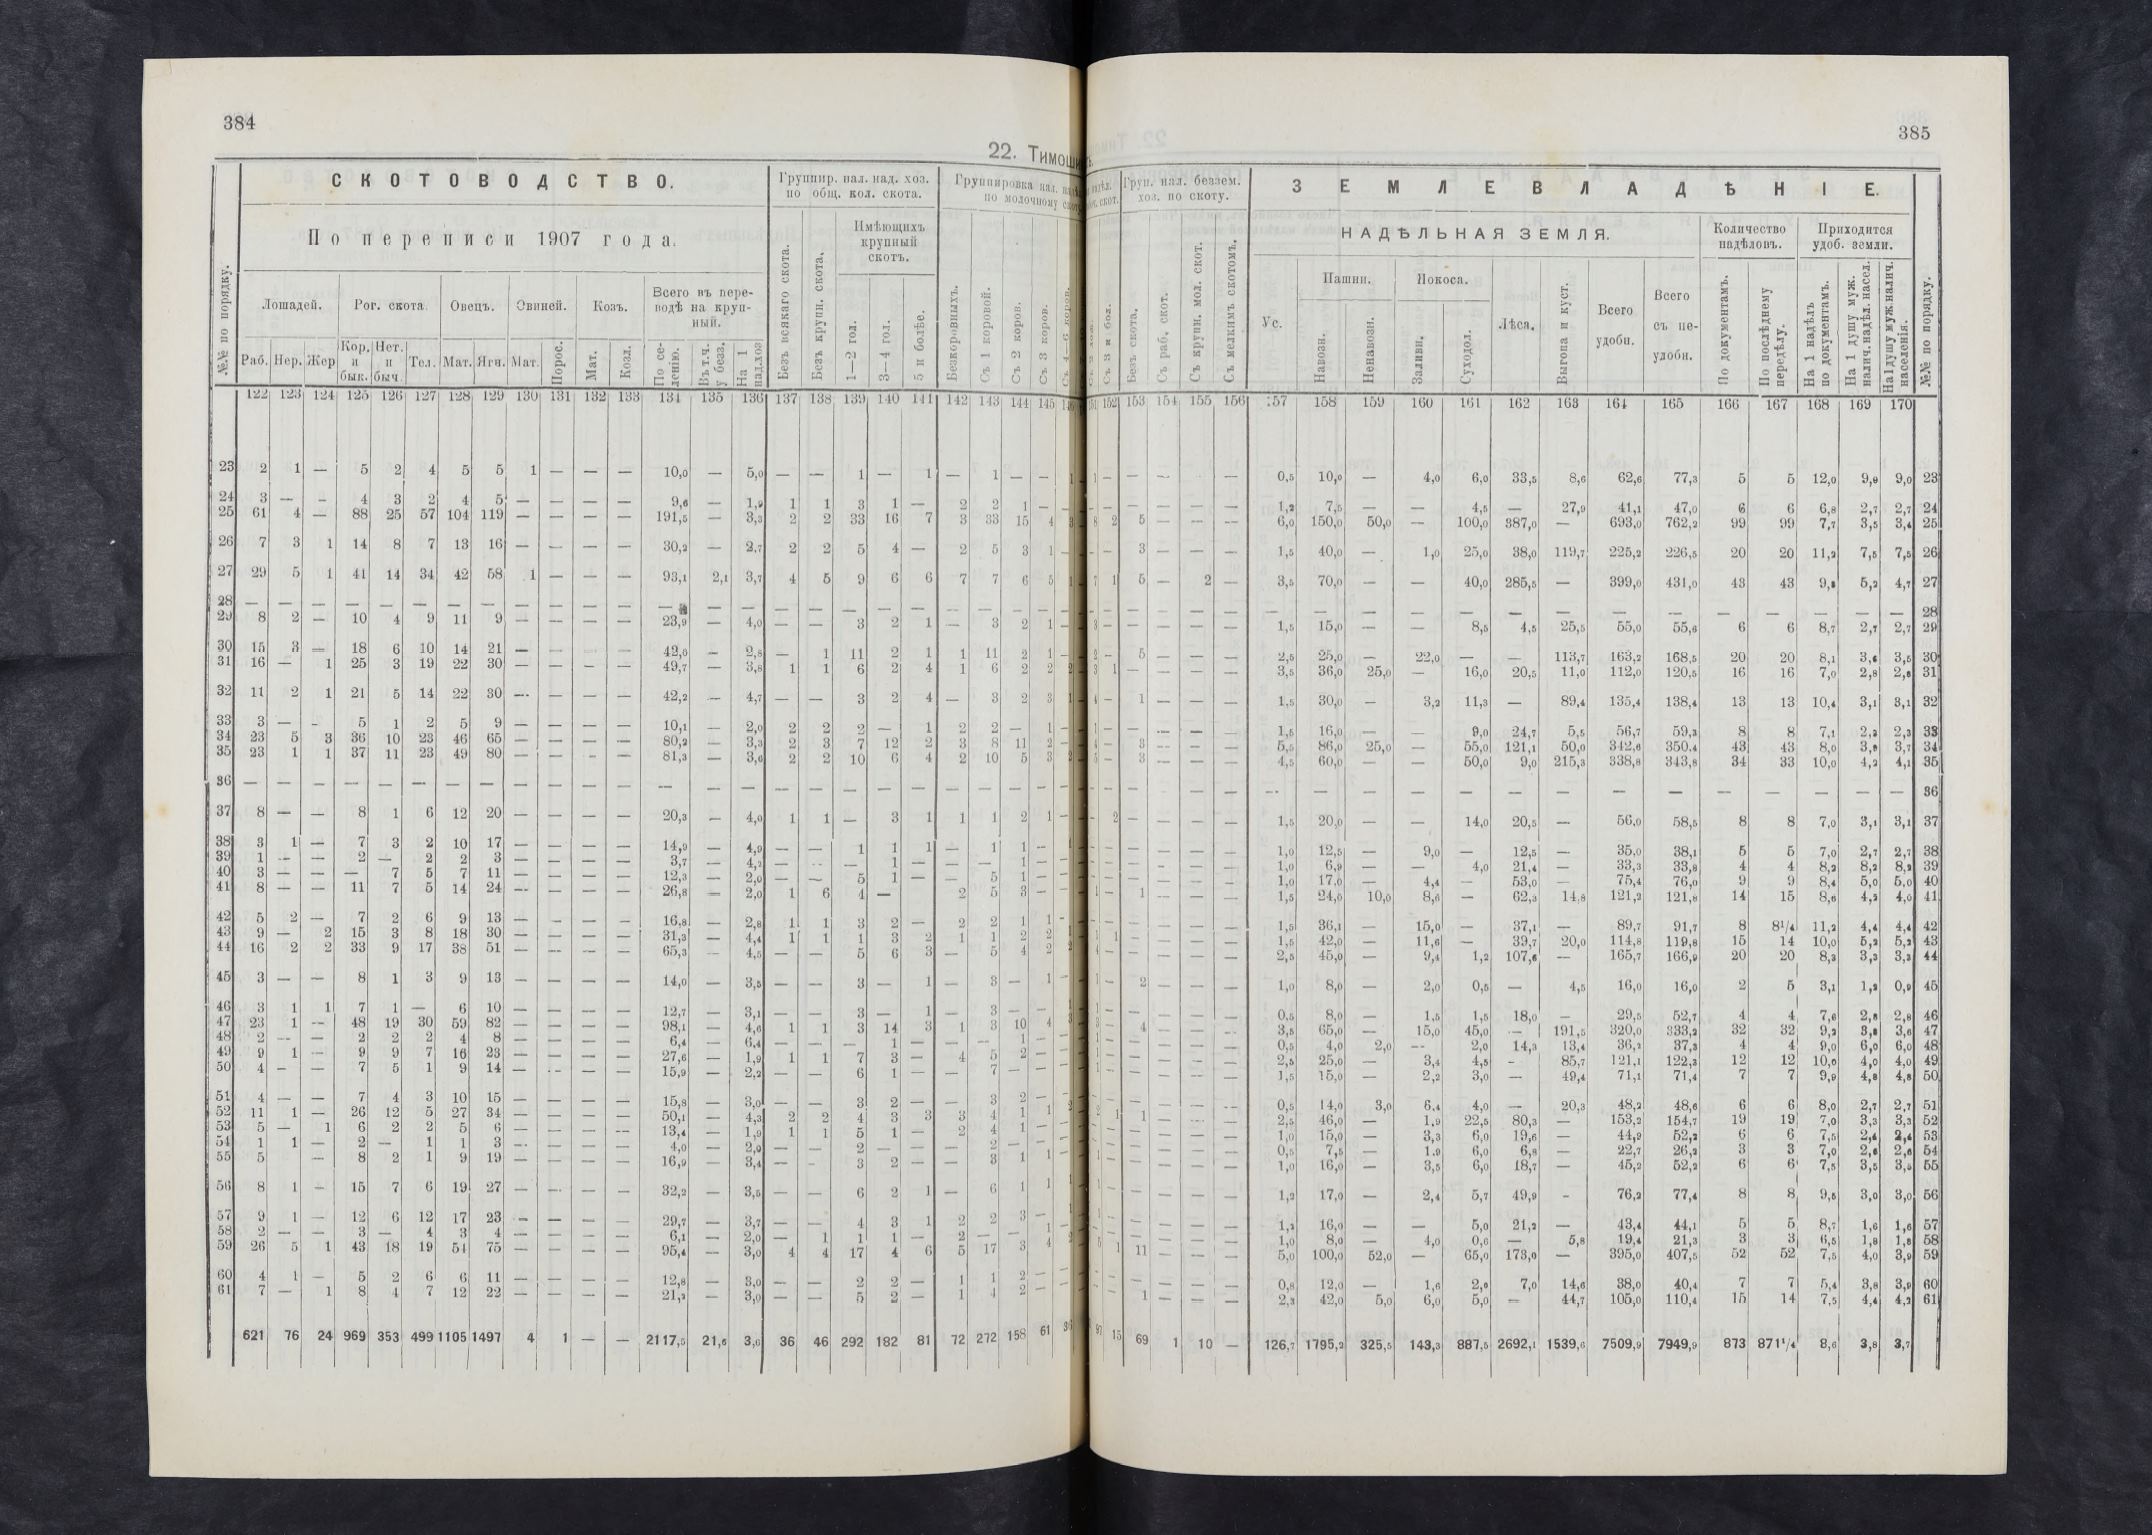 384
22. Тимоши
СКОТОВОДСТВО.
Группир. нал. над. хоз. по общ. кол. скота.
Группировка нал.
по молочному
По переписи 1907 года.
Имѣющихъ крупный скотъ.
№№ по порядку.
Лошадей. Рог. скота. Овецъ. Свиней. Козъ. Всего въ переводѣ на крупный.
Безъ всякаго скота. Безъ крупн. скота. 1—2 гол. 3—4 гол. 5 и болѣе. Безкоровныхъ. Съ 1 коровой. Съ 2 коров. Съ 3 коров.
Раб. Нер. Жер Кор. и бык. Нет. и быч. Тел. Мат. Ягн. Мат. Порос. Мат. Козл. По селенію. Въ т.ч. у безз. На 1 над.хоз
122 123 124 125 126 127 128 129 130 131 132 133 134 135 136 137 138 139 140 141 142 143 144 145
23 2 1 — 5 2 4 5 5 1 — — — 10,0 — 5,0 — — 1 — 1 — 1 — —
24 3 — — 4 3 2 4 5 — — — — 9,6 — 1,9 1 1 3 1 — 2 2 1 —
25 61 4 — 88 25 57 104 119 — — — — 191,5 — 3,3 2 2 33 16 7 3 33 15 4
26 7 3 1 14 8 7 13 16 — — — — 30,2 — 2,7 2 2 5 4 — 2 5 3 1
27 29 5 1 41 14 34 42 58 1 — — — 93,1 2,1 3,7 4 5 9 6 6 7 7 6 5
28 — — — — — — — — — — — — — — — — — — — — — — — —
29 8 2 — 10 4 9 11 9 — — — — 23,9 — 4,0 — — 3 2 1 — 3 2 1
30 15 3 — 18 6 10 14 21 — — — — 42,6 — 2,8 — 1 11 2 1 1 11 2 1
31 16 — 1 25 3 19 22 30 — — — — 49,7 — 3,8 1 1 6 2 4 1 6 2 2
32 11 2 1 21 5 14 22 30 — — — — 42,2 — 4,7 — — 3 2 4 — 3 2 3
33 3 — — 5 1 2 5 9 — — — — 10,1 — 2,0 2 2 2 — 1 2 2 — 1
34 23 5 3 36 10 23 46 65 — — — — 80,2 — 3,3 2 3 7 12 2 3 8 11 2
35 23 1 1 37 11 23 49 80 — — — — 81,3 — 3,6 2 2 10 6 4 2 10 5 3
36 — — — — — — — — — — — — — — — — — — — — — — — —
37 8 — — 8 1 6 12 20 — — — — 20,3 — 4,0 1 1 — 3 1 1 1 2 1
38 3 1 — 7 3 2 10 17 — — — — 14,9 — 4,9 — — 1 1 1 — 1 1 —
39 1 — — 2 — 2 2 3 — — — — 3,7 — 4,2 — — — 1 — — — 1 —
40 3 — — — 7 5 7 11 — — — — 12,3 — 2,0 — — 5 1 — — 5 1 —
41 8 — — 11 7 5 14 24 — — — — 26,8 — 2,0 1 6 4 — 2 5 3 —
42 5 2 — 7 2 6 9 13 — — — — 16,8 — 2,8 1 1 3 2 — 2 2 1 1
43 9 — 2 15 3 8 18 30 — — — — 31,3 — 4,4 1 1 1 3 2 1 1 2 2
44 16 2 2 33 9 17 38 51 — — — — 65,3 — 4,5 — — 5 6 3 — 5 4 2
45 3 — — 8 1 3 9 13 — — — — 14,0 — 3,5 — — 3 — 1 — 3 — 1
46 3 1 1 7 1 — 6 10 — — — — 12,7 — 3,1 — — 3 — 1 — 3 — —
47 23 1 — 48 19 30 59 82 — — — — 98,1 — 4,6 1 1 3 14 3 1 3 10 4
48 2 — — 2 2 2 4 8 — — — — 6,4 — 6,4 — — — 1 — — — 1 —
49 9 1 — 9 9 7 16 23 — — — — 27,6 — 1,9 1 1 7 3 — 4 5 2 —
50 4 — — 7 5 1 9 14 — — — — 15,9 — 2,2 — — 6 1 — — 7 — —
51 4 — — 7 4 3 10 15 — — — — 15,8 — 3,0 — — 3 2 — — 3 2 —
52 11 1 — 26 12 5 27 34 — — — — 50,1 — 4,3 2 2 4 3 3 3 4 1 1
53 5 — 1 6 2 2 5 6 — — — — 13,4 — 1,9 1 1 5 1 — 2 4 1 —
54 1 1 — 2 — 1 1 3 — — — — 4,0 — 2,0 — — 2 — — — 2 — —
55 5 — 8 2 1 9 19 — — — — 16,9 — 3,4 — — 3 2 — — 3 1 1
56 8 1 — 15 7 6 19 27 — — — — 32,2 — 3,5 — — 6 2 1 — 6 1 1
57 9 1 — 12 6 12 17 23 — — — — 29,7 — 3,7 — — 4 3 1 2 2 3 —
58 2 — — 3 — 4 3 4 — — — — 6,1 — 2,0 — 1 1 1 — 2 — — 1
59 26 5 1 43 18 19 51 75 — — — — 95,4 — 3,0 4 4 17 4 6 5 17 3 4
60 4 1 — 5 2 6 6 11 — — — — 12,8 — 3,0 — — 2 2 — 1 1 2 —
61 7 — 1 8 4 7 12 22 — — — — 21,2 — 3,0 — — 5 2 — 1 4 2 —
621 76 24 969 353 499 1105 1497 4 1 — — 2117,5 21,6 3,6 36 46 292 182 81 72 272 158 61
385
Груп. нал. беззем. хоз. по скоту.
ЗЕМЛЕВЛАДѢНІЕ.
НАДѢЛЬНАЯ ЗЕМЛЯ.
Количество надѣловъ.
Приходится удоб. земли.
Съ 3 и бол. Безъ скота. Съ раб. скот. Съ крупн. мол. скот. Съ мелкимъ скотомъ.
Ус. Пашни. Покоса. Лѣса. Выгона и куст. Всего удобн. Всего съ неудобн.
Навозн. Ненавозн. Заливн. Суходол.
По документамъ. По послѣднему передѣлу. На 1 надѣлъ по документамъ. На 1 душу муж. налич. надѣл. насел. На 1 душу муж. налич. населенія. №№ по порядку.
152 153 154 155 156 157 158 159 160 161 162 163 164 165 166 167 168 169 170
1 — — — — — 0,5 10,0 — 4,0 6,0 33,5 8,6 62,6 77,3 5 5 12,0 9,0 9,0 23
1,2 7,5 — — 4,5 — 27,9 41,1 47,0 6 6 6,8 2,7 2,7 24
8 2 5 — — — 6,0 150,0 50,0 — 100,0 387,0 — 693,0 762,2 99 99 7,7 3,5 3,4 25
— — 3 — — — 1,5 40,0 — 1,0 25,0 38,0 119,7 225,2 226,5 20 20 11,2 7,5 7,5 26
7 1 5 — 2 — 3,5 70,0 — — 40,0 285,5 — 399,0 431,0 43 43 9,8 5,2 4,7 27
— — — — — — — — — — — — — — — — — — — — 28
3 — — — — — 1,5 15,0 — — 8,5 4,5 25,5 55,0 55,6 6 6 8,7 2,7 2,7 29
2 — 5 — — — 2,5 25,0 — 22,0 — — 113,7 163,2 168,5 20 20 8,1 3,6 3,5 30
3 1 — — — — 3,5 36,0 25,0 — 16,0 20,5 11,0 112,0 120,5 16 16 7,0 2,8 2,8 31
4 — 1 — — — 1,5 30,0 — 3,2 11,3 — 89,4 135,4 138,4 13 13 10,4 3,1 3,1 32
1 — — — — — 1,5 16,0 — — 9,0 24,7 5,5 56,7 59,3 8 8 7,1 2,3 2,3 33
4 — 3 — — — 5,5 86,0 25,0 — 55,0 121,1 50,0 342,6 350,4 43 43 8,0 3,9 3,7 34
5 — 3 — — — 4,5 60,0 — — 50,0 9,0 215,3 338,8 343,8 34 33 10,0 4,2 4,1 35
— — — — — — — — — — — — — — — — — — — — 36
— 2 — — — — 1,5 20,0 — — 14,0 20,5 — 56,0 58,5 8 8 7,0 3,1 3,1 37
1,0 12,5 — 9,0 — 12,5 — 35,0 38,1 5 5 7,0 2,7 2,7 38
1,0 6,9 — — 4,0 21,4 — 33,3 33,8 4 4 8,2 8,2 8,2 39
1,0 17,0 — 4,4 — 53,0 — 75,4 76,0 9 9 8,4 5,0 5,0 40
1 — 1 — — — 1,5 24,0 10,0 8,6 — 62,3 14,8 121,2 121,8 14 15 8,6 4,2 4,0 41
1,5 36,1 — 15,0 — 37,1 — 89,7 91,7 8 8¹/₄ 11,2 4,4 4,4 42
1,5 42,0 — 11,6 — 39,7 20,0 114,8 119,8 15 14 10,0 5,2 5,2 43
2,5 45,0 — 9,4 1,2 107,6 — 165,7 166,9 20 20 8,3 3,3 3,3 44
1 — 2 — — — 1,0 8,0 — 2,0 0,5 — 4,5 16,0 16,0 2 5 3,1 1,2 0,9 45
0,5 8,0 — 1,5 1,5 18,0 — 29,5 52,7 4 4 7,6 2,8 2,8 46
3 — 4 — — — 3,5 65,0 — 15,0 45,0 — 191,5 320,0 333,2 32 32 9,2 3,8 3,6 47
0,5 4,0 2,0 — 2,0 14,3 13,4 36,2 37,3 4 4 9,0 6,0 6,0 48
2,5 25,0 — 3,4 4,5 — 85,7 121,1 122,3 12 12 10,0 4,0 4,0 49
1,5 15,0 — 2,2 3,0 — 49,4 71,1 71,4 7 7 9,9 4,8 4,8 50
0,5 14,0 3,0 6,4 4,0 — 20,3 48,2 48,6 6 6 8,0 2,7 2,7 51
2 1 1 — — — 2,5 46,0 — 1,9 22,5 80,3 — 153,2 154,7 19 19 7,0 3,3 3,3 52
1,0 15,0 — 3,3 6,0 19,6 — 44,9 52,2 6 6 7,5 2,4 2,4 53
0,5 7,5 — 1,9 6,0 6,8 — 22,7 26,2 3 3 7,0 2,6 2,6 54
1,0 16,0 — 3,5 6,0 18,7 — 45,2 52,2 6 6 7,5 3,5 3,5 55
1,2 17,0 — 2,4 5,7 49,9 — 76,2 77,4 8 8 9,5 3,0 3,0 56
1,2 16,0 — — 5,0 21,2 — 43,4 44,1 5 5 8,7 1,6 1,6 57
1,0 8,0 — 4,0 0,6 — 5,8 19,4 21,3 3 3 6,5 1,8 1,8 58
5 1 11 — — — 5,0 100,0 52,0 — 65,0 173,0 — 395,0 407,5 52 52 7,5 4,0 3,9 59
0,8 12,0 — 1,6 2,0 7,0 14,6 38,0 40,4 7 7 5,4 3,8 3,9 60
1 — — — 2,3 42,0 5,0 6,0 5,0 — 44,7 105,0 110,4 15 14 7,5 4,4 4,2 61
97 15 69 1 10 — 126,7 1795,2 325,5 143,3 887,5 2692,1 1539,6 7509,9 7949,9 873 871¹/₄ 8,6 3,8 3,7